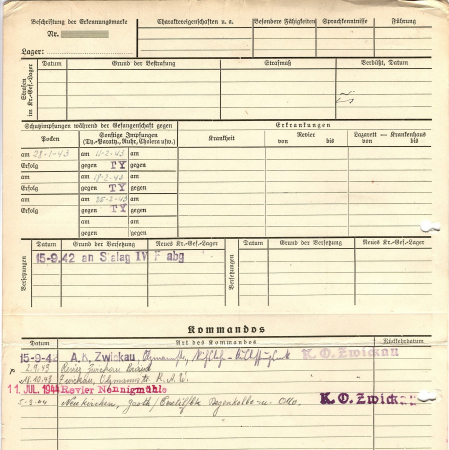 Beschriftung der Erkennungsmarke
Charaktereigenschaften u. a.
Besondere Fähigkeiten
Sprachkenntnisse
Führung
Nr.
Lager:
Strafen im Kr.-Gef.-Lager
Datum
Grund der Bestrafung
Strafmaß
Verbüßt, Datum
Schutzimpfungen während der Gefangenschaft gegen
Erkrankungen
Pocken
Sonstige Impfungen
(Ty.-Paraty., Ruhr, Cholera usw.)
Krankheit
Revier
von bis
Lazarett — Krankenhaus
von bis
am 28-1-43 am 11-2-43
Erfolg gegen TY
am am 18-2-43
Erfolg gegen TY
am am 25-2-43
Erfolg gegen TY
am am
gegen gegen
am am
gegen gegen
Versetzungen
Datum
Grund der Versetzung
Neues Kr.-Gef.-Lager
Versetzungen
Datum
Grund der Versetzung
Neues Kr.-Gef.-Lager
15-9.42 an Stalag IV F abg
Kommandos
Datum
Art des Kommandos
Rückkehrdatum
15-9-42 A.K. Zwickau, K.O. Zwickau
2.9.43 Revier Zwickau
.10.43 Zwickau,
11. JUL. 1944 Revier Nennigmühle
5-9-44 Neukirchen, K.O. Zwickau